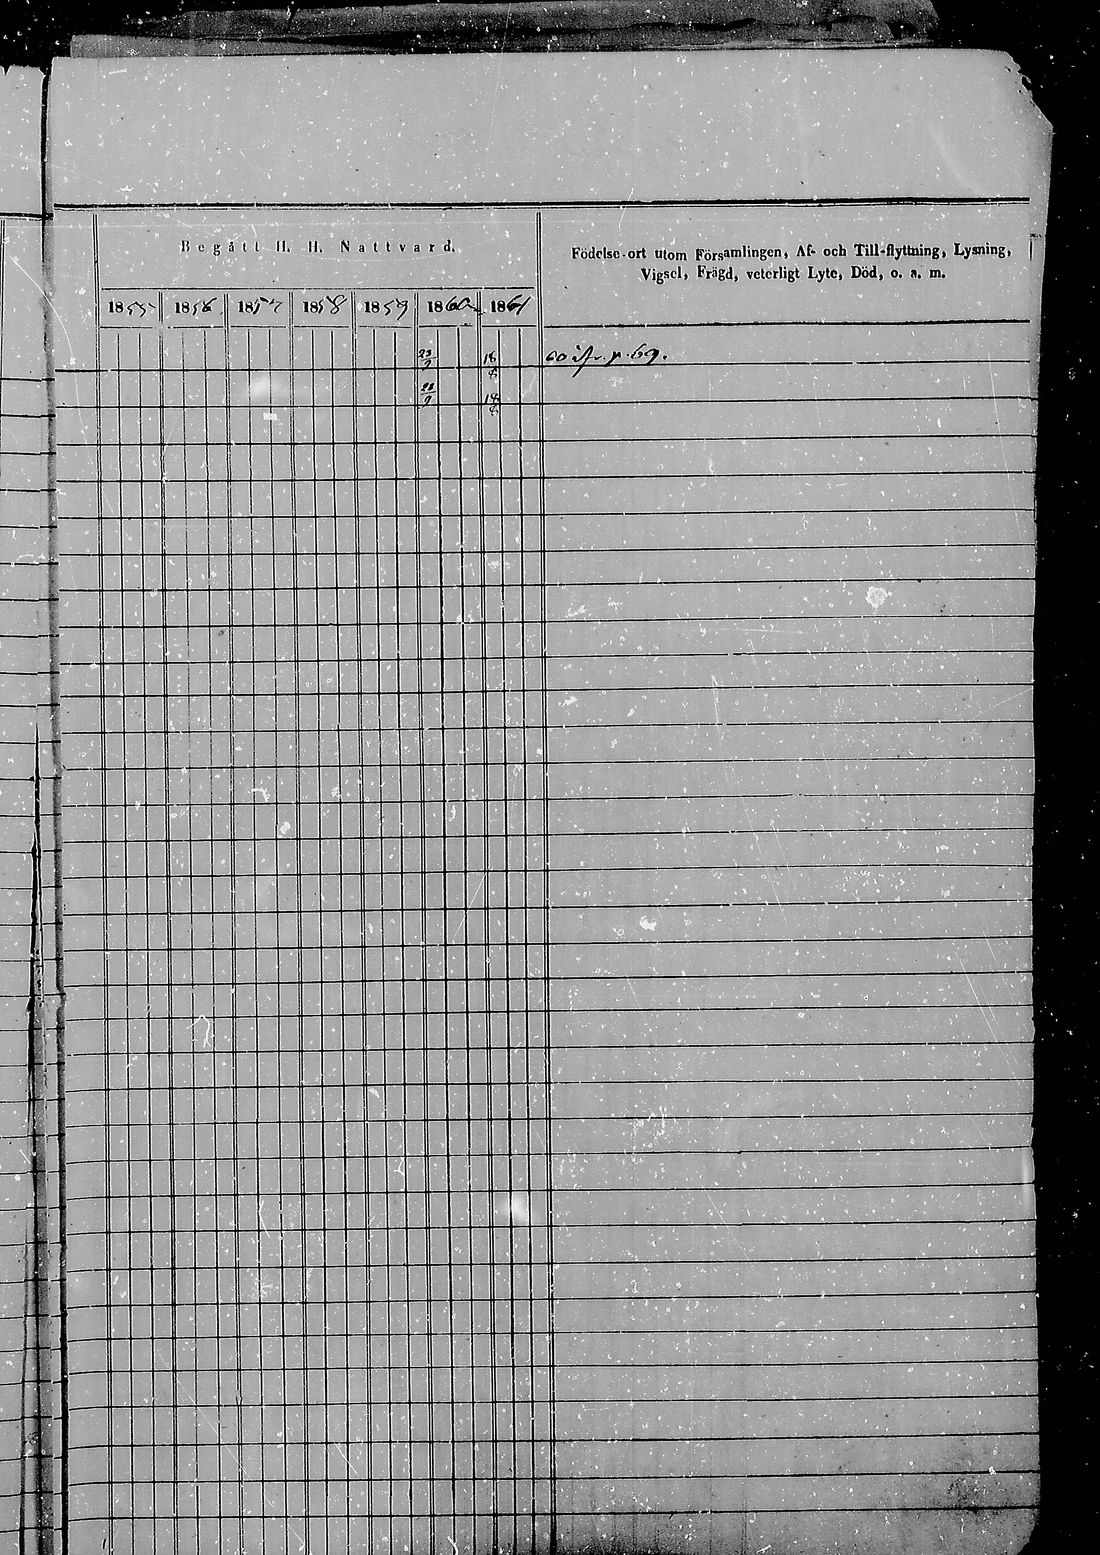 Begått H. H. Nattvard.
Födelse-ort utom Församlingen, Af- och Till-flyttning, Lysning,
Vigsel, Frägd, veterligt Lyte, Död, o. a. m.
1855 1856 1857 1858 1859 1860 1861
23/9 18/8 60 p. 69.
23/9 18/8